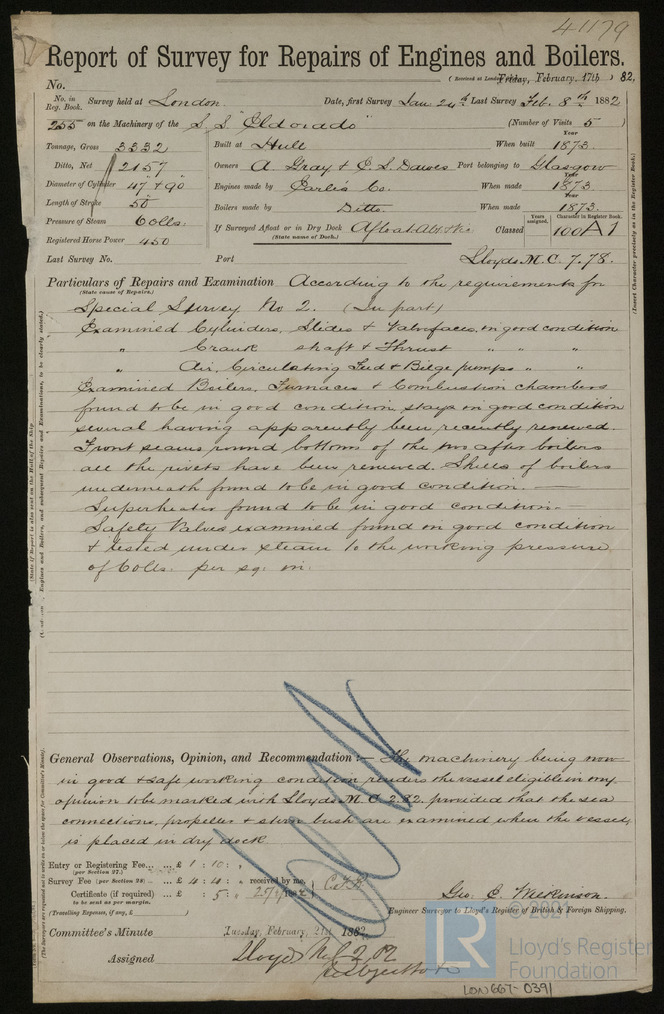 41179
Report of Survey for Repairs of Engines and Boilers.
No. (Received at London Friday, February, 17th) 82,
No. in Reg. Book. Survey held at London Date, first Survey Jan 24th Last Survey Feb. 8th 1882
255 on the Machinery of the S.S. "Eldorado" (Number of Visits 5)
Tonnage, Gross 3332 Built at Hull When built Year 1873
Ditto, Net 2157 Owners A. Gray & E. S. Dawes Port belonging to Glasgow
Diameter of Cylinder 47 & 90 Engines made by Earles Co. When made Year 1873
Length of Stroke 50 Boilers made by Ditto When made Year 1873.
Pressure of Steam 60lbs. If Surveyed Afloat or in Dry Dock Afloat Classed Years assigned. Character in Register Book. 100A1
(State name of Dock.)
Registered Horse Power 450
Last Survey No. Port Lloyds M.C. 7.78.
Particulars of Repairs and Examination According to the requirements for
(State cause of Repairs.)
Special Survey No 2. (In part)
Examined Cylinders, Slides & Valvefaces, in good condition
" Crank shaft & Thrust " " "
" Air, Circulating Feed & Bilge pumps " "
Examined Boilers, Furnaces & Combustion chambers
found to be in good condition, stays in good condition
several having apparently been recently renewed.
Front seams round bottoms of the two after boilers
all the rivets have been renewed. Shells of boilers
underneath found to be in good condition.
Superheater found to be in good condition
Safety Valves examined found in good condition
& tested under steam to the working pressure
of 60lbs. per sq: in:
General Observations, Opinion, and Recommendation:— The machinery being now
in good & safe working condition renders the vessel eligible in my
opinion to be marked with Lloyds M.C. 2.82. provided that the sea
connections, propeller & stern bush are examined when the vessel
is placed in dry dock
Entry or Registering Fee... £ 1 : 10 : "
(per Section 27.)
Survey Fee (per Section 28) ... £ 4 : 4 : " received by me,
Certificate (if required) ... £ : 5 : " 27/2/1882
to be sent as per margin.
(Travelling Expense, if any, £ )
Geo. C. Wilkinson.
Engineer Surveyor to Lloyd's Register of British & Foreign Shipping.
Committee's Minute Tuesday, February, 21st, 1882
Assigned Lloyds M.C. 2.82
Subject to
(Insert Character precisely as in the Register Book.)
© 2021
LR
Lloyd's Register
Foundation
LON667-0391